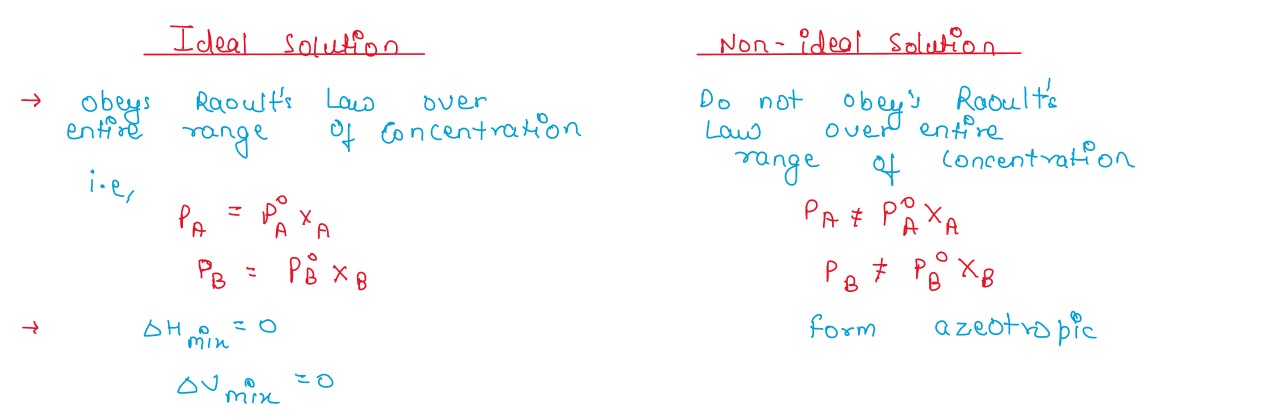 Ideal Solution
→ obeys Raoult's Law over
entire range of concentration
i.e,
P_A = P°_A X_A
P_B = P°_B X_B
→ ΔH_mix = 0
ΔV_mix = 0
Non-ideal Solution
Do not obey's Raoult's
Law over entire
range of concentration
P_A ≠ P°_A X_A
P_B ≠ P°_B X_B
form azeotropic